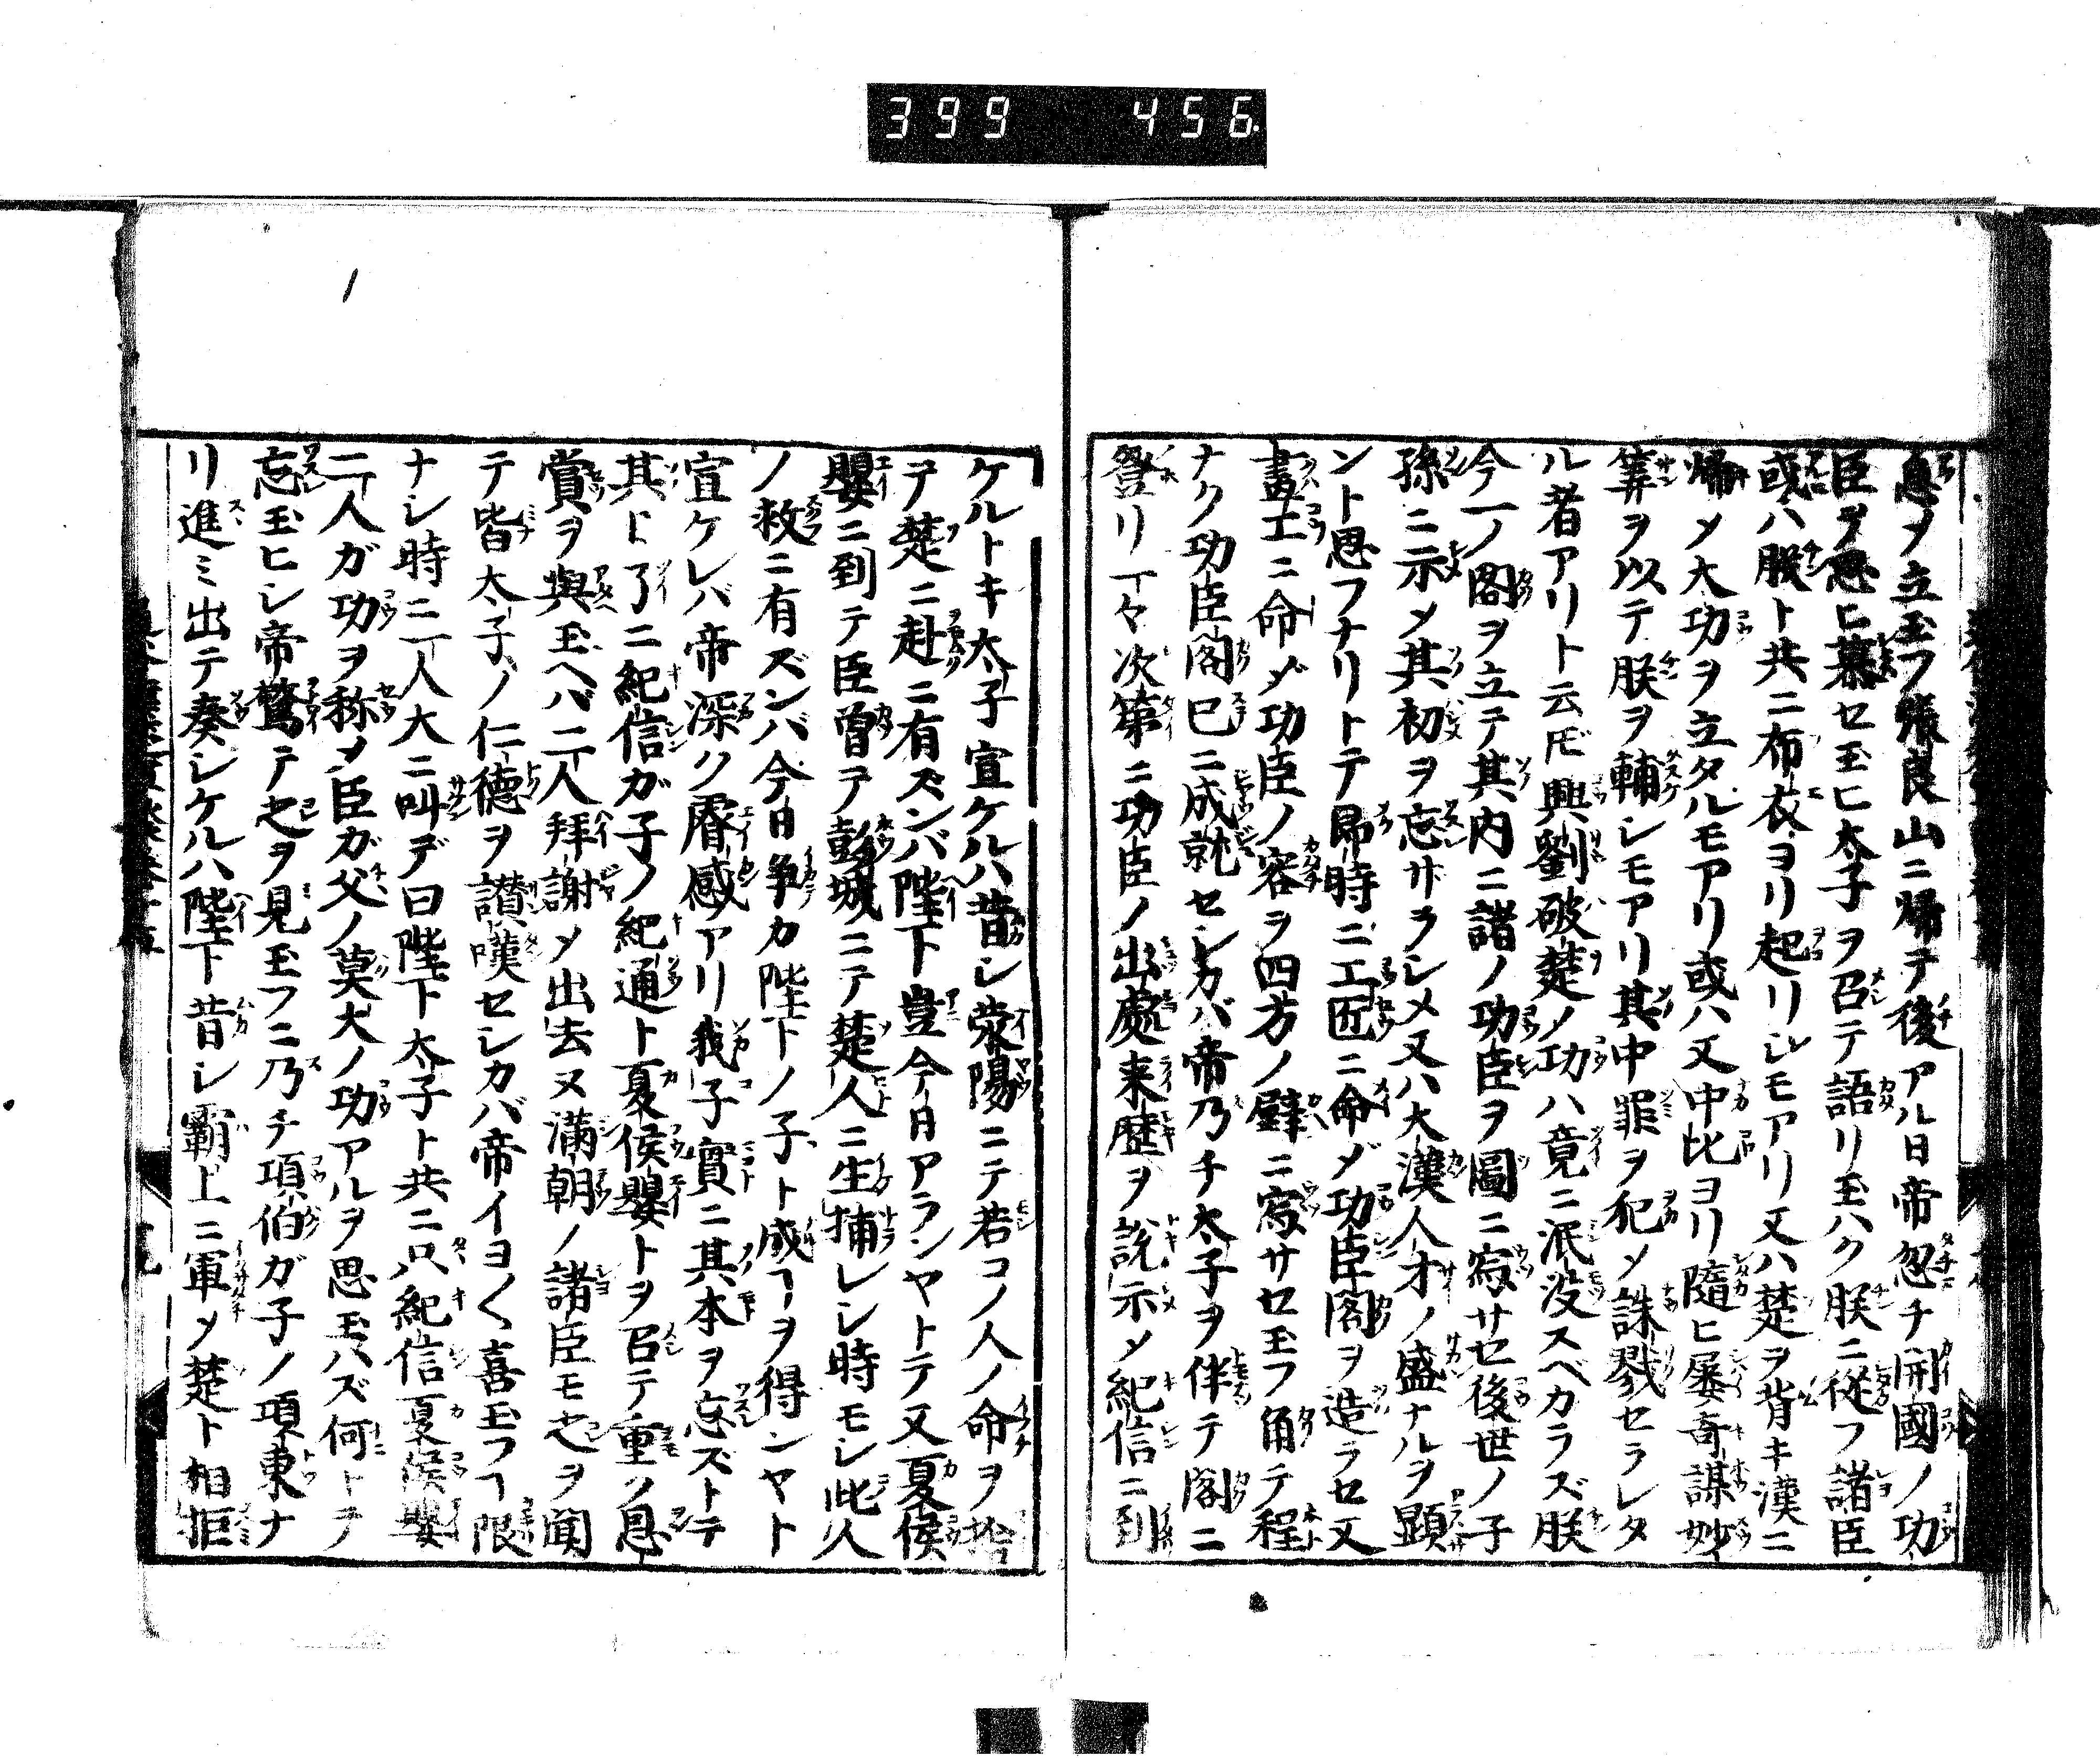 399 456
息ヲ立玉フ張良山ニ帰テ後アル日帝忽チ開國ノ功
臣ヲ思ヒ慕セ玉ヒ太子ヲ召テ語リ玉ハク朕ニ従フ諸臣
或ハ朕ト共ニ布衣ヨリ起リシモアリ又ハ楚ヲ背キ漢ニ
帰メ大功ヲ立タルモアリ或ハ又中比ヨリ隨ヒ屡奇謀妙
筭ヲ以テ朕ヲ輔シモアリ其中罪ヲ犯メ誅戮セラレタ
ル者アリト云ドモ興劉破楚ノ功ハ竟ニ泯没スベカラズ朕
今一ノ閣ヲ立テ其内ニ諸ノ功臣ヲ圖ニ寫サセ後世ノ子
孫ニ示メ其初ヲ忘サラシメ又ハ大漢人才ノ盛ナルヲ顕サ
ント思フナリトテ即時ニ工匠ニ命ジ功臣閣ヲ造ラセ又
畫工ニ命ジ功臣ノ容ヲ四方ノ壁ニ寫サセ玉フ角テ程
ナク功臣閣已ニ成就セシカバ帝乃チ太子ヲ伴テ閣ニ
登リ一々次第ニ功臣ノ出處来歴ヲ説示メ紀信ニ到
ケルトキ太子宣ケルハ昔シ滎陽ニテ若コノ人ノ命ヲ捨
テ楚ニ赴ニ有ズンバ陛下豈今日アランヤトテ又夏侯
嬰ニ到テ臣曽テ彭城ニテ楚人ニ生捕レシ時モシ此人
ノ救ニ有ズンバ今日争カ陛下ノ子ト成ヿヲ得ンヤト
宣ケレバ帝深ク睿感アリ我子實ニ其本ヲ忘ズトテ
其ト了ニ紀信ガ子ノ紀通ト夏侯嬰トヲ召テ重ク恩
賞ヲ與玉ヘバ二人拝謝メ出去ヌ満朝ノ諸臣モ之ヲ聞
テ皆太子ノ仁徳ヲ讃嘆セシカバ帝イヨく喜玉フヿ限
ナシ時ニ一人大ニ叫デ曰陛下太子ト共ニ只紀信夏侯嬰
二人ガ功ヲ称メ臣ガ父ノ莫大ノ功アルヲ思玉ハズ何トテ
忘玉ヒシ帝驚テ之ヲ見玉フニ乃チ項伯ガ子ノ項東ナ
リ進ミ出テ奏シケルハ陛下昔シ覇上ニ軍メ楚ト相拒